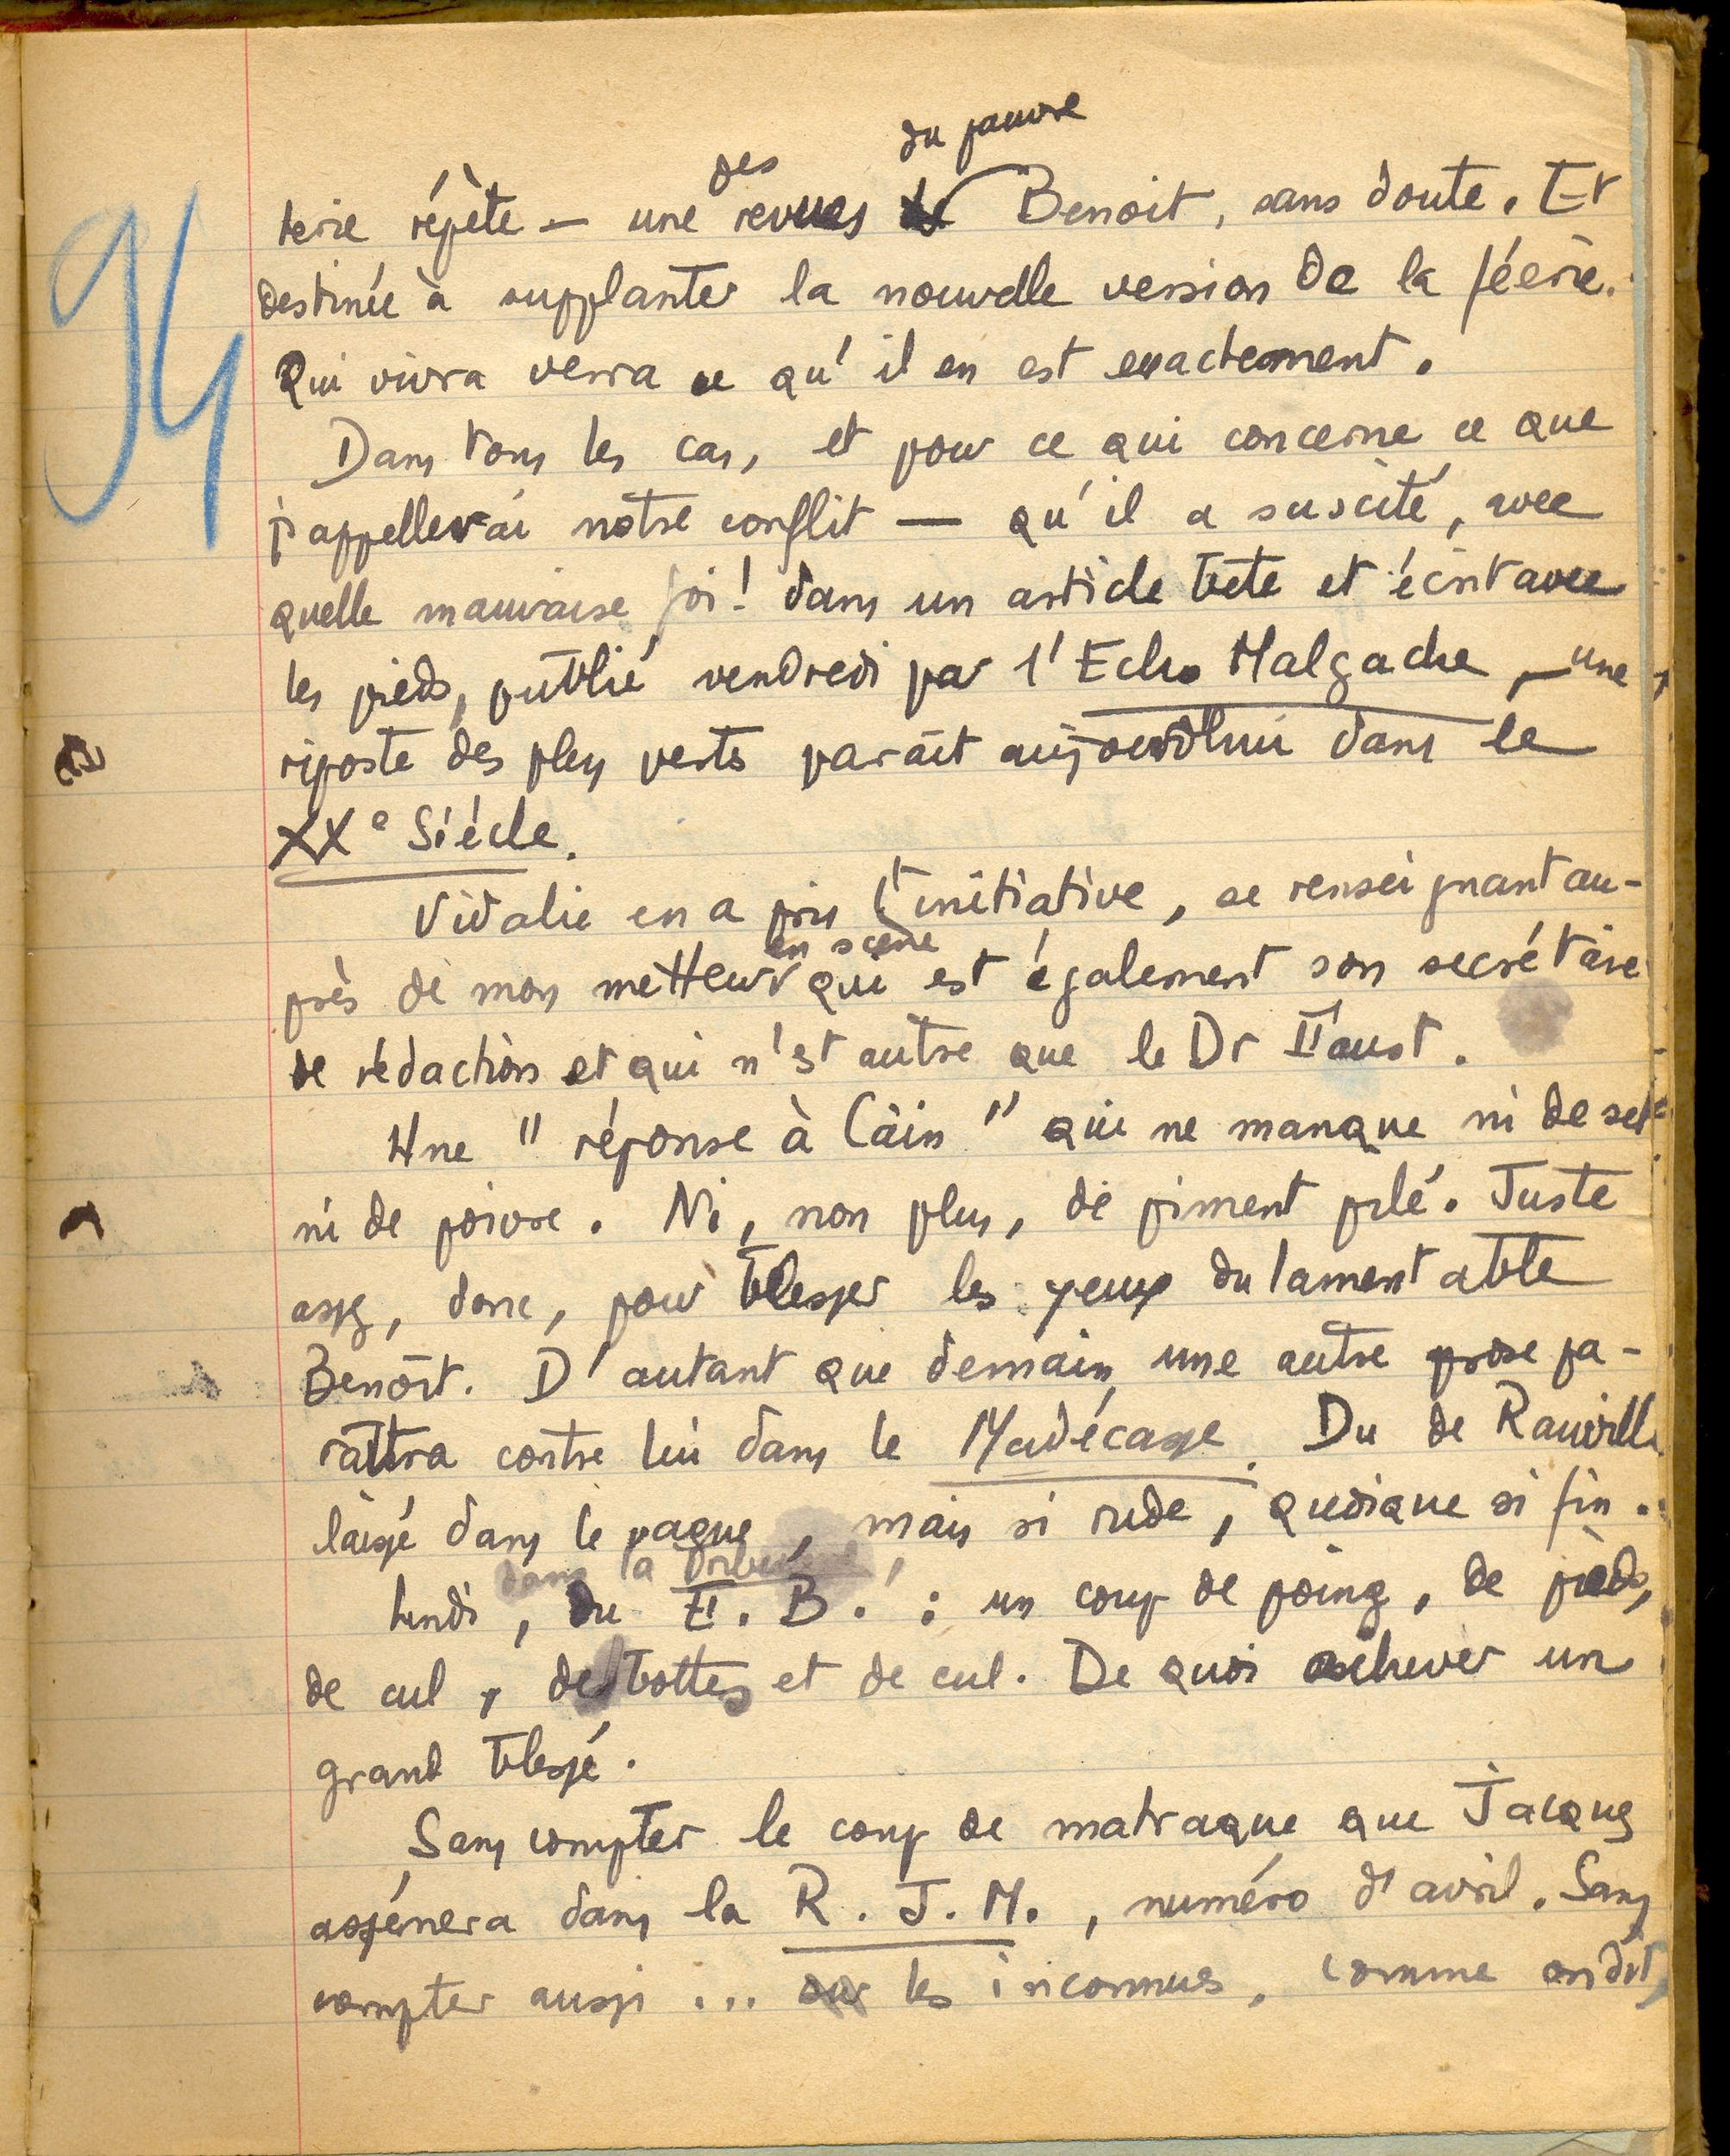 94
des du pauvre
terie répète — une revues Benoit, sans doute. Et
destinée à supplanter la nouvelle version de la féerie.
Qui vivra verra ce qu'il en est exactement.
Dans tous les cas, et pour ce qui concerne ce que
j'appellerai notre conflit — qu'il a suscité, avec
quelle mauvaise foi! dans un article bête et écrit avec
les pieds, publié vendredi par l'Echo Malgache, — une
riposte des plus vertes paraît aujourd'hui dans le
XXe Siècle.
Vidalie en a pris l'initiative, se renseignant au-
en scène
près de mon metteur qui est également son secrétaire
de rédaction et qui n'est autre que le Dr Faust.
Une "réponse à Caïn" qui ne manque ni de sel
ni de poivre. Ni, non plus, de piment pilé. Juste
assez, donc, pour blesser les yeux du lamentable
Benoît. D'autant que demain, une autre prose pa-
raîtra contre lui dans le Madécasse. Du de Rauville
laissé dans le vague, mais si rude, quoique si fin.
dans la Tribune
Lundi, du E. B. : un coup de poing, de pieds,
de cul, de bottes et de cul. De quoi achever un
grand blessé.
Sans compter le coup de matraque que Jacques
assénera dans la R. J. M., numéro d'avril. Sans
compter aussi ... les inconnues, comme on dit,